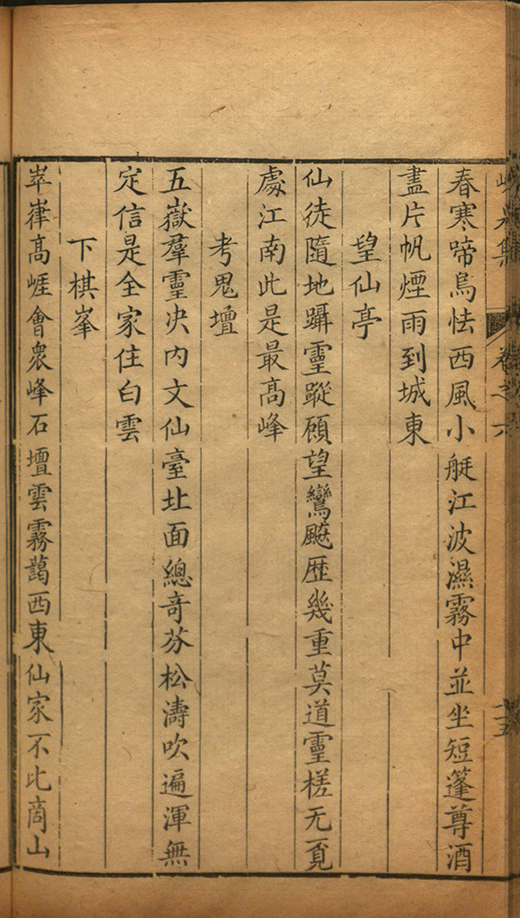 卷之六
十五
春寒啼烏怯西風小艇江波濕霧中並坐短篷尊酒
盡片帆煙雨到城東
望仙亭
仙徒隨地躡靈蹤頋望鸞飈歷幾重莫道靈槎无覓
處江南此是最高峰
考鬼壇
五嶽羣靈决内文仙臺北面總竒芬松濤吹遍渾無
定信是全家住白雲
下棋峯
崒嵂高崕會衆峰石壇雲霧藹西東仙家不比商山